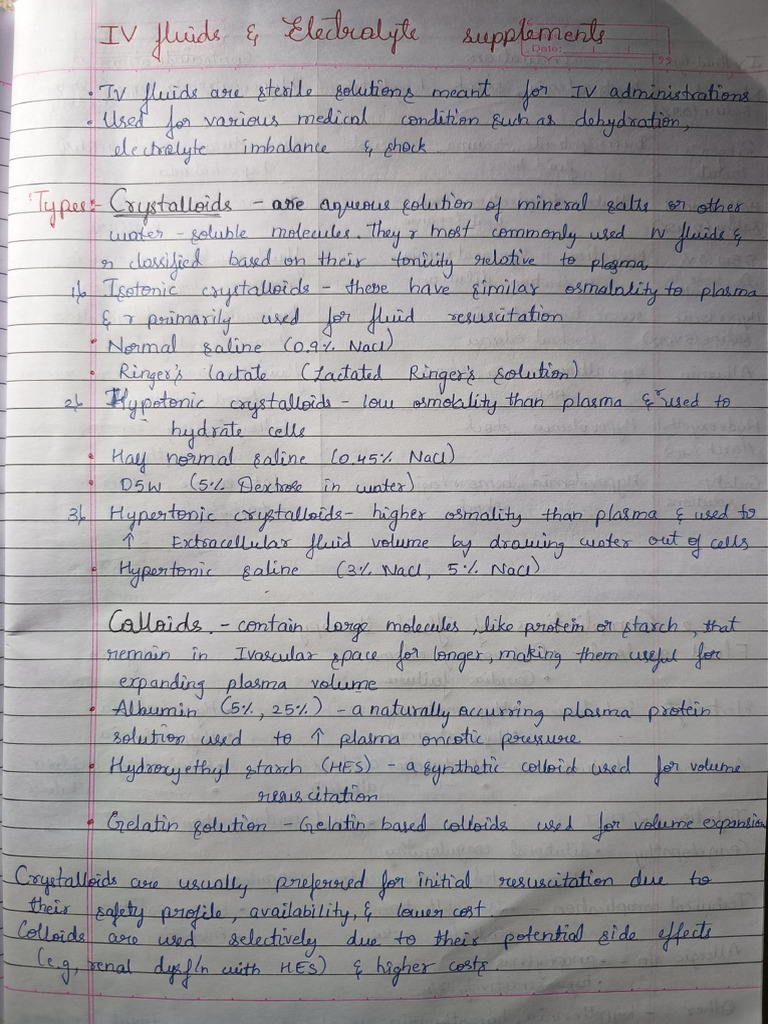 IV fluids & Electrolyte supplements
Date:
• IV fluids are sterile solutions meant for IV administrations
• Used for various medical condition such as dehydration,
electrolyte imbalance & shock.
Types:- Crystalloids - are aqueous solution of mineral salts or other
water-soluble molecules. They r most commonly used IV fluids &
r classified based on their tonicity relative to plasma
1) Isotonic crystalloids - these have similar osmolality to plasma
& r primarily used for fluid resuscitation
• Normal saline (0.9% NaCl)
• Ringer's lactate (Lactated Ringer's solution)
2) Hypotonic crystalloids - low osmolality than plasma & r used to
hydrate cells
• Half normal saline (0.45% NaCl)
• D5W (5% Dextrose in water)
3) Hypertonic crystalloids- higher osmality than plasma & used to
↑ Extracellular fluid volume by drawing water out of cells
• Hypertonic saline (3% NaCl, 5% NaCl)
Colloids. - contain large molecules, like protein or starch, that
remain in Ivascular space for longer, making them useful for
expanding plasma volume
• Albumin (5%, 25%) - a naturally occurring plasma protein
solution used to ↑ plasma oncotic pressure
• Hydroxyethyl starch (HES) - a synthetic colloid used for volume
resuscitation
• Gelatin solution - Gelatin based colloids used for volume expansion
Crystalloids are usually preferred for initial resuscitation due to
their safety profile, availability, & lower cost.
Colloids are used selectively due to their potential side effects
(e.g, renal dysf/n with HES) & higher costs.